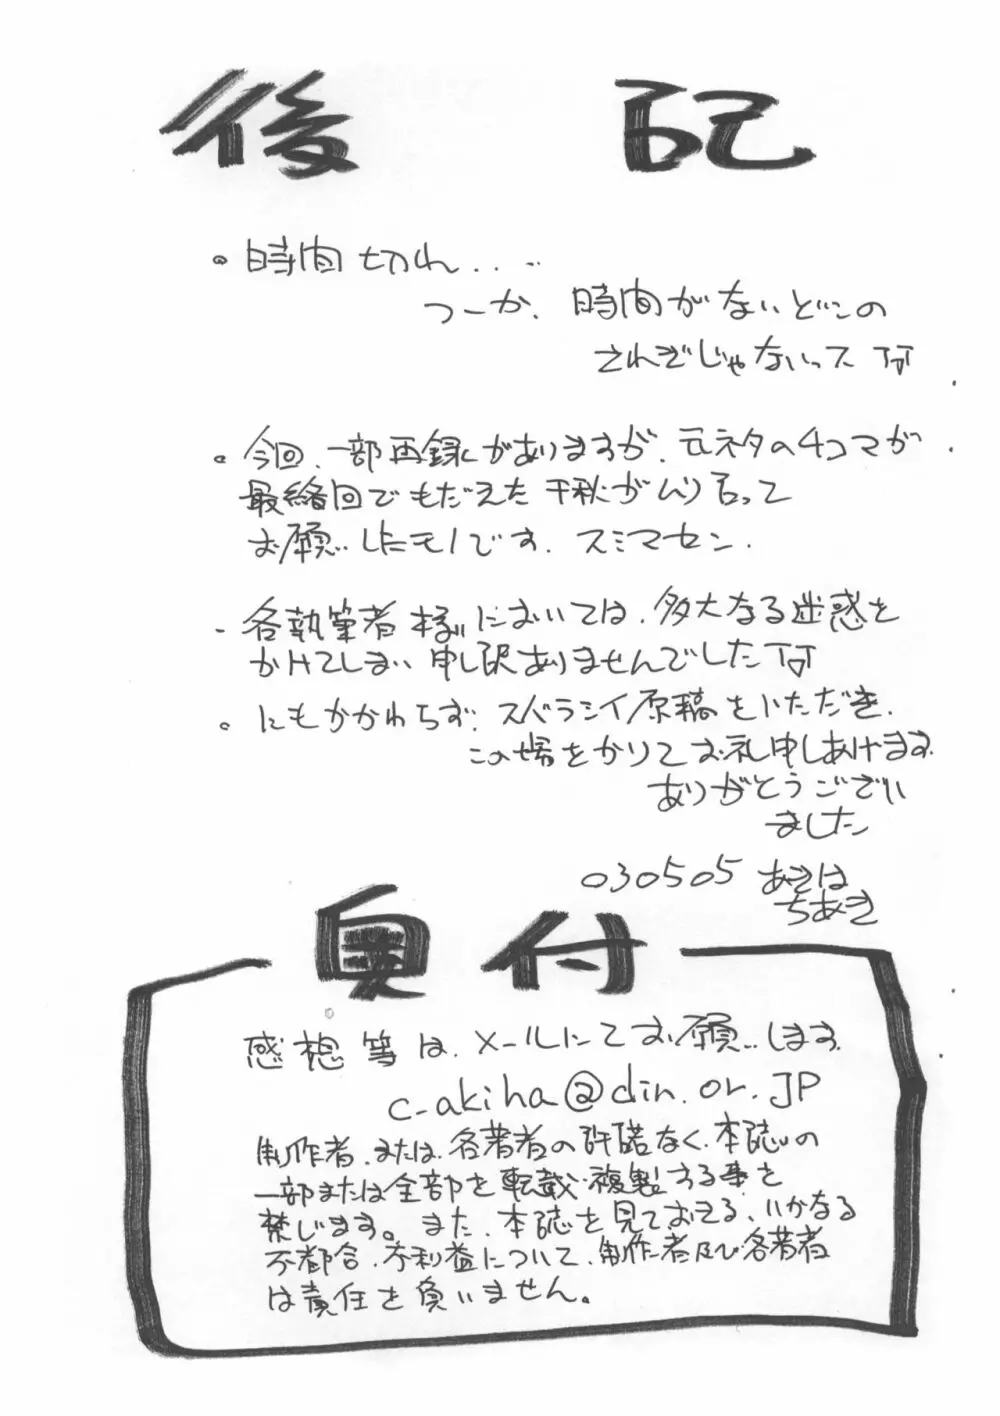 後記
。時間切れ.. ..
つーか、時間がないどこの
さわぎじゃないっス TT
。今回、一部再録がありますが、元ネタの4コマが
最終回でもだえた千秋がムリ言って
お願いしたモノです。スミマセン.
・各執筆者様においては、多大なる迷惑を
かけてしまい申し訳ありませんでした TT
。にもかかわらず、スバラシイ原稿をいただき、
この場をかりてお礼申しあげます
ありがとうござい
ました
030505 あきは
ちあき
奥付
感想等は、メールにてお願いします
c-akiha@din.or.JP
制作者、または、各著者の許諾なく、本誌の
一部または全部を転載・複製する事を
禁じます。また、本誌を見ておえる、いかなる
不都合、不利益について、制作者及び各著者
は責任を負いません。